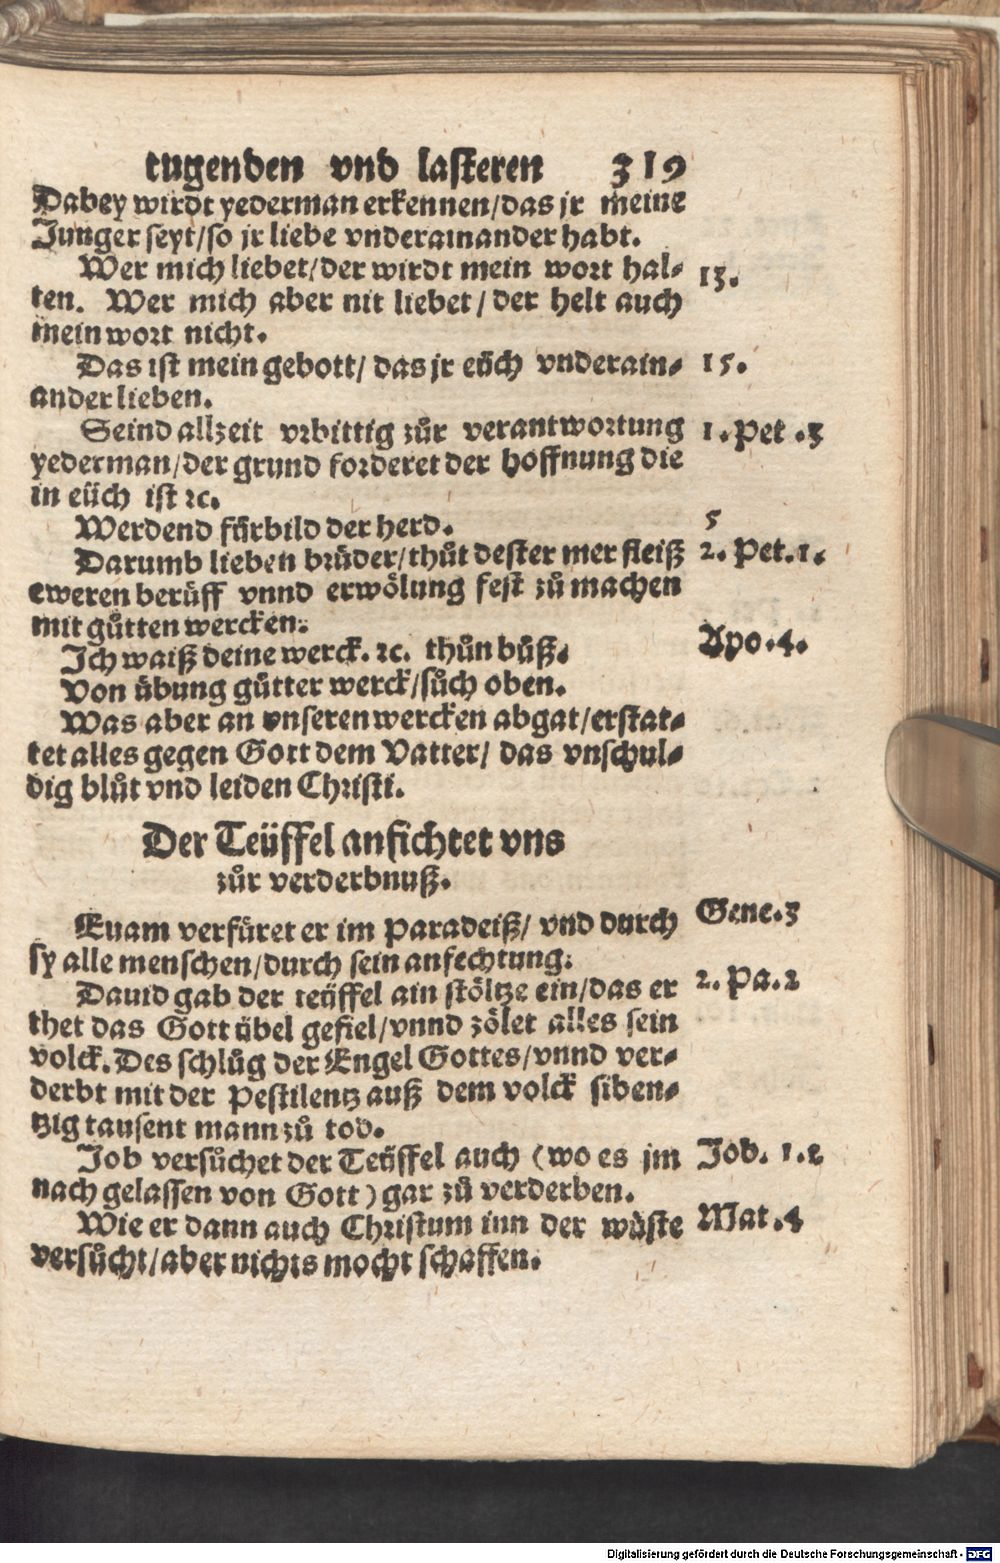 tugenden vnd lasteren 319
Dabey wirdt yederman erkennen/das jr meine
Junger seyt/so jr liebe vnderainander habt.
Wer mich liebet/der wirdt mein wort hal- 13.
ten. Wer mich aber nit liebet/der helt auch
mein wort nicht.
Das ist mein gebott/das jr eüch vnderain- 15.
ander lieben.
Seind allzeit vrbittig zůr verantwortung 1.Pet.3
yederman/der grund forderet der hoffnung die
in eüch ist ꝛc.
Werdend fürbild der herd. 5
Darumb lieben brůder/thůt dester mer fleiß 2.Pet.1.
eweren berůff vnnd erwölung fest zů machen
mit gůtten wercken.
Ich waiß deine werck.ꝛc. thůn bůß. Apo.4.
Von übung gůtter werck/sůch oben.
Was aber an vnseren wercken abgat/erstat-
tet alles gegen Gott dem Vatter/das vnschul-
dig blůt vnd leiden Christi.
Der Teüffel anfichtet vns
zůr verderbnuß.
Euam verfüret er im Paradeiß/vnd durch Gene.3
sy alle menschen/durch sein anfechtung.
Dauid gab der teüffel ain stöltze ein/das er 2.Pa.2
thet das Gott übel gefiel/vnnd zölet alles sein
volck. Des schlůg der Engel Gottes/vnnd ver-
derbt mit der Pestilentz auß dem volck siben-
tzig tausent mann zů tod.
Job versůchet der Teüffel auch (wo es jm Job. 1.2
nach gelassen von Gott) gar zů verderben.
Wie er dann auch Christum inn der wüste Mat.4
versůcht/aber nichts mocht schaffen.
Digitalisierung gefördert durch die Deutsche Forschungsgemeinschaft - DFG